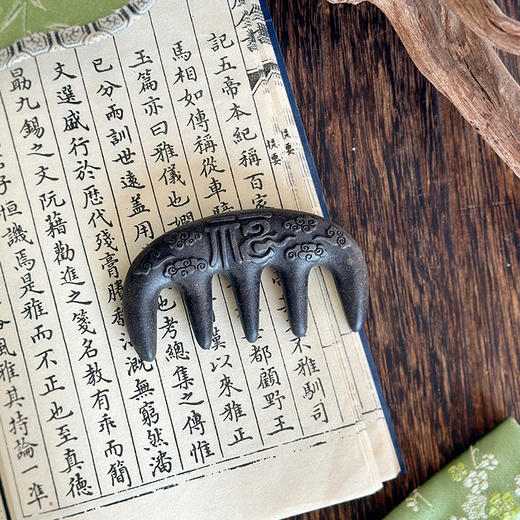 記五帝本紀稱百家
不雅馴司
馬相如傳稱從車
都顧野王
玉篇亦曰雅儀也
漢以來雅正
已分兩訓世遠蓋用
也考總集之傳惟
文選盛行於歷代殘膏賸
溉無窮然潘
勗九錫之文阮藉勸進之箋名教有乖而簡
子恒譏焉是雅而不正也至真德
風雅其持論一準
提要
提要